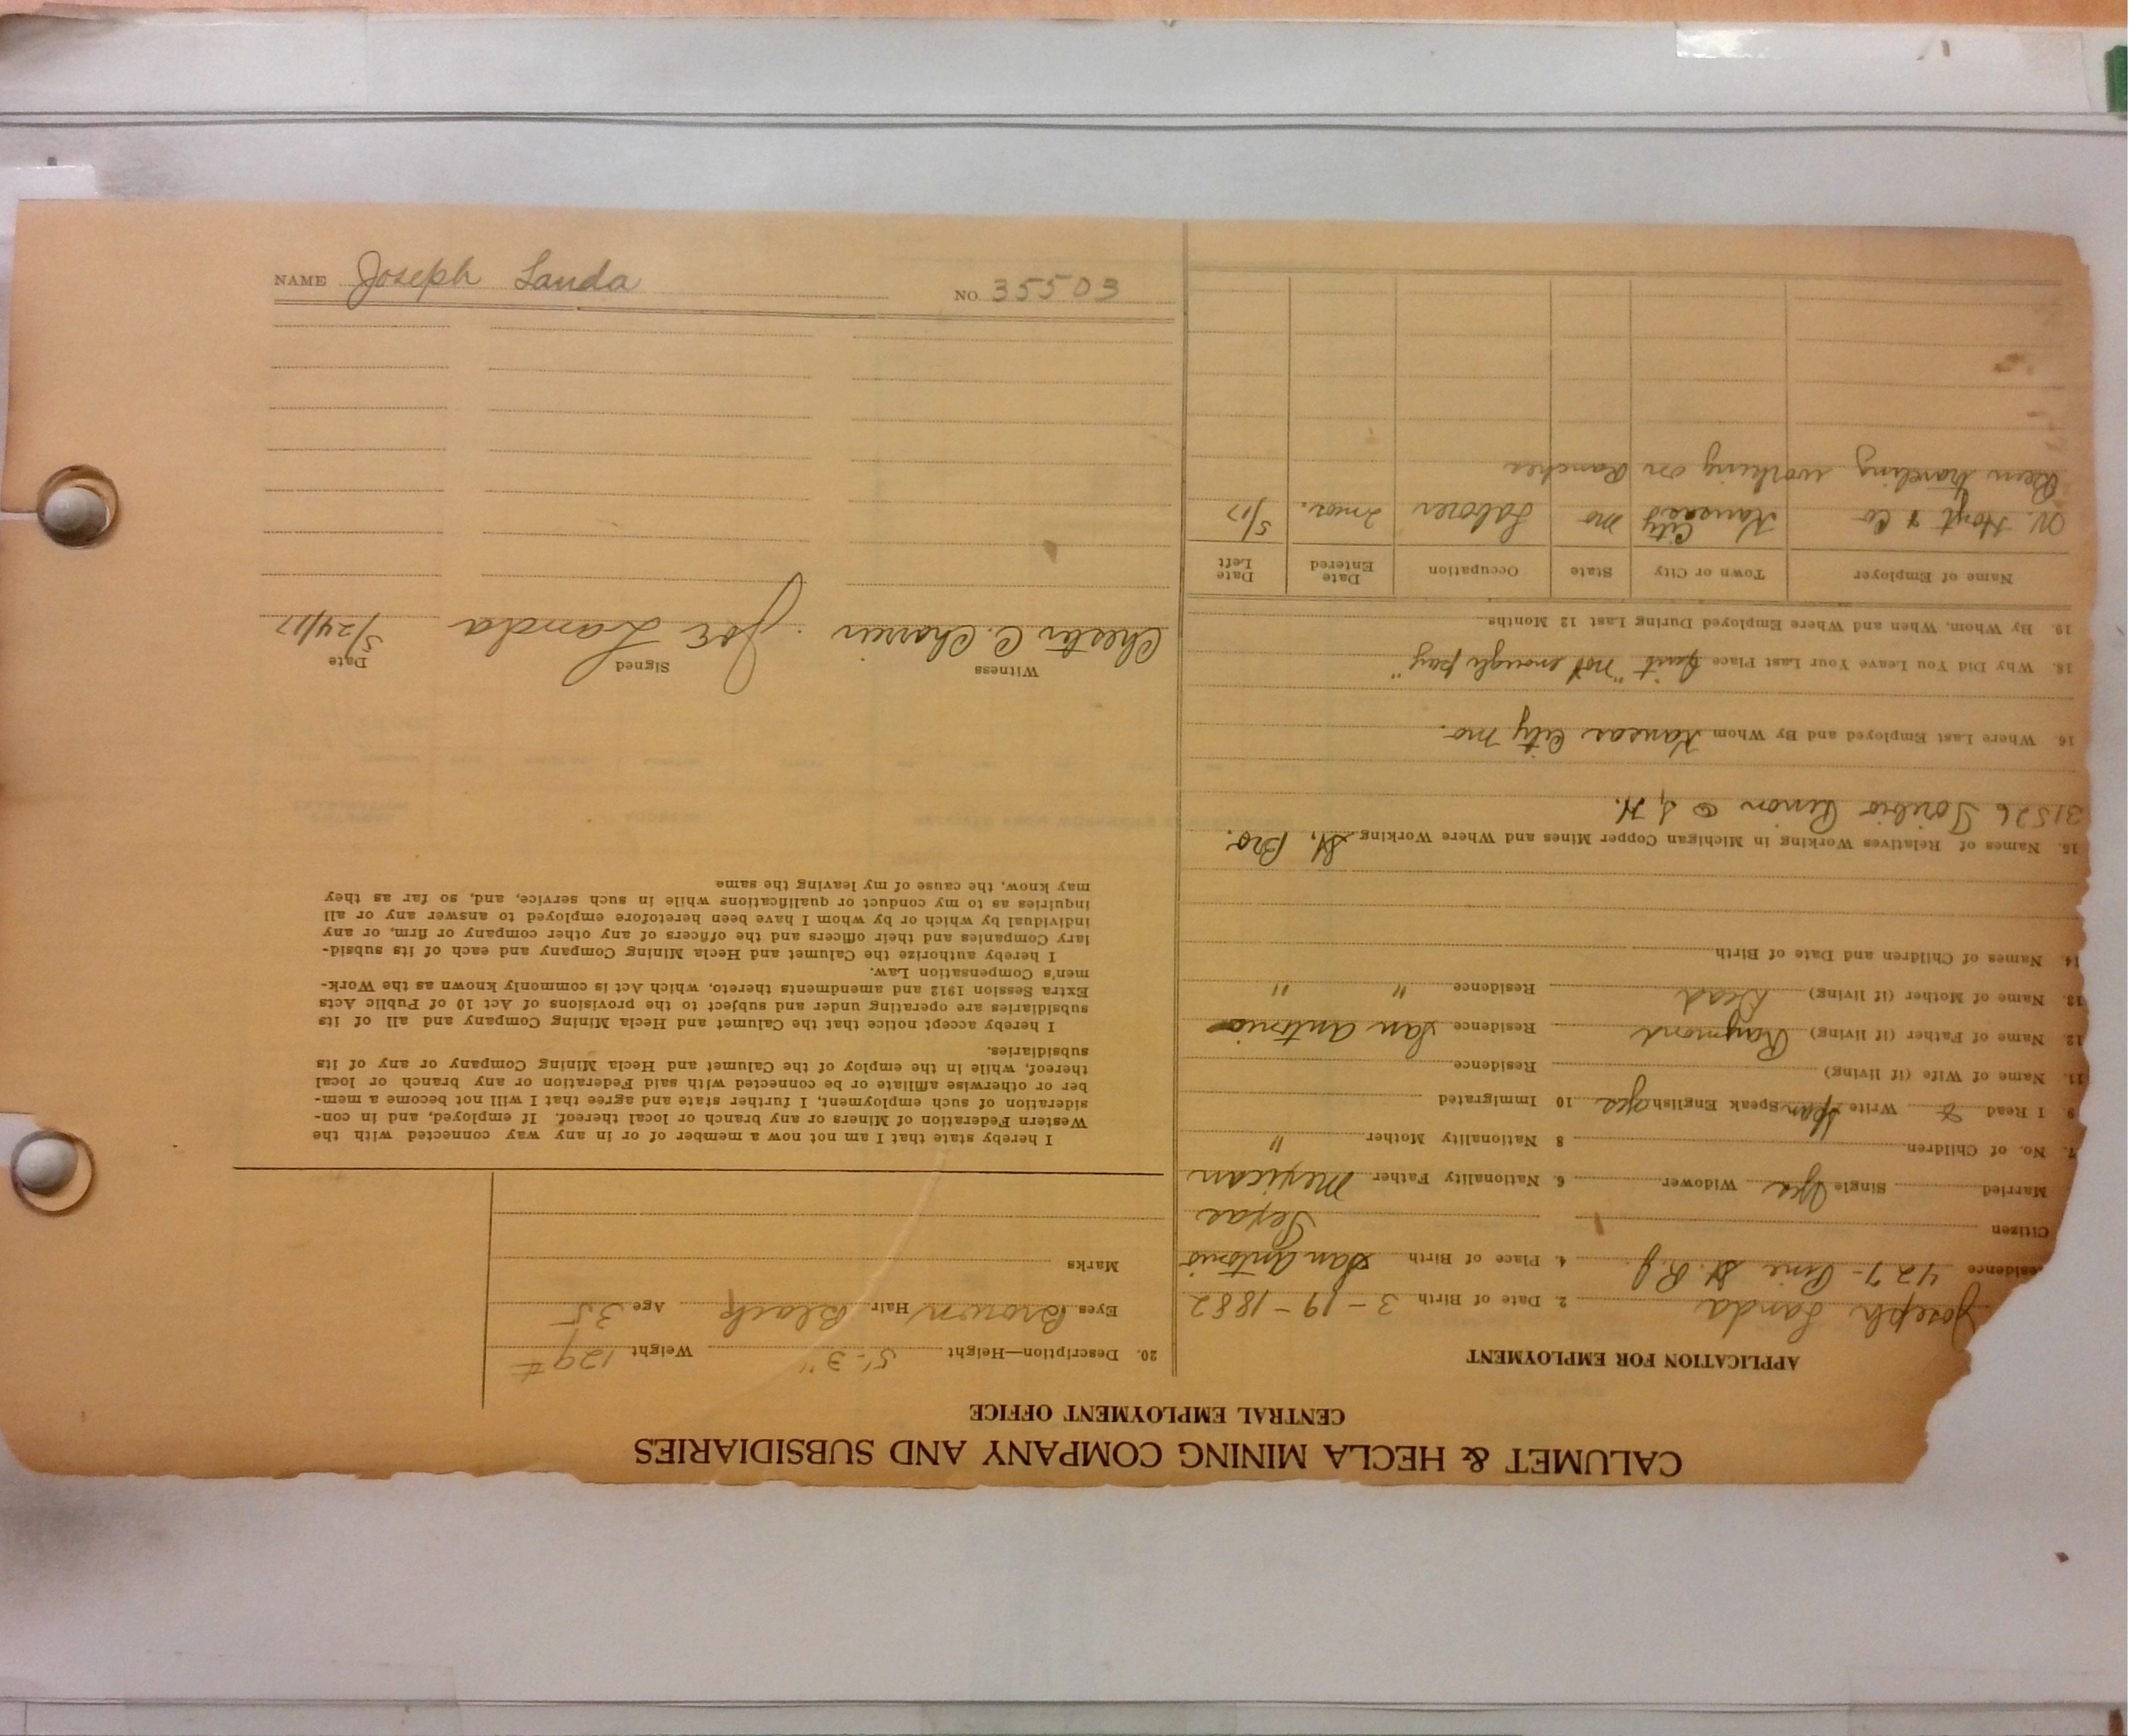 CALUMET & HECLA MINING COMPANY AND SUBSIDIARIES
CENTRAL EMPLOYMENT OFFICE
APPLICATION FOR EMPLOYMENT
Joseph Landa 2. Date of Birth 3-19-1882
esidence 427- Pine St. R.J. 4. Place of Birth San Antonio
Citizen Texas
Married Single Yes Widower 6. Nationality Father Mexican
7. No. of Children 8 Nationality Mother "
9 I Read & Write Span Speak English yes 10 Immigrated
11. Name of Wife (if living) Residence
12. Name of Father (if living) Raymond Residence San Antonio
13. Name of Mother (if living) Dead Residence " "
14. Names of Children and Date of Birth
15. Names of Relatives Working in Michigan Copper Mines and Where Working St. Bro.
31526 Toribio
16. Where Last Employed and By Whom Kansas City Mo.
18. Why Did You Leave Your Last Place Quit "not enough pay"
19. By Whom, When and Where Employed During Last 12 Months
Name of Employer Town or City State Occupation Date Entered Date Left
Hoyt & Co Kansas City Mo Laborer 2 mos. 5/17
Been traveling working on Ranches
20. Description—Height 5'-3" Weight 129#
Eyes Brown Hair Black Age 35
Marks
I hereby state that I am not now a member of or in any way connected with the
Western Federation of Miners or any branch or local thereof. If employed, and in con-
sideration of such employment, I further state and agree that I will not become a mem-
ber or otherwise affiliate or be connected with said Federation or any branch or local
thereof, while in the employ of the Calumet and Hecla Mining Company or any of its
subsidiaries.
I hereby accept notice that the Calumet and Hecla Mining Company and all of its
subsidiaries are operating under and subject to the provisions of Act 10 of Public Acts
Extra Session 1912 and amendments thereto, which Act is commonly known as the Work-
men's Compensation Law.
I hereby authorize the Calumet and Hecla Mining Company and each of its subsid-
iary Companies and their officers and the officers of any other company or firm, or any
individual by which or by whom I have been heretofore employed to answer any or all
inquiries as to my conduct or qualifications while in such service, and, so far as they
may know, the cause of my leaving the same
Witness Signed Date
Chester C. Joe Landa 5/24/17
NAME Joseph Landa NO 35503